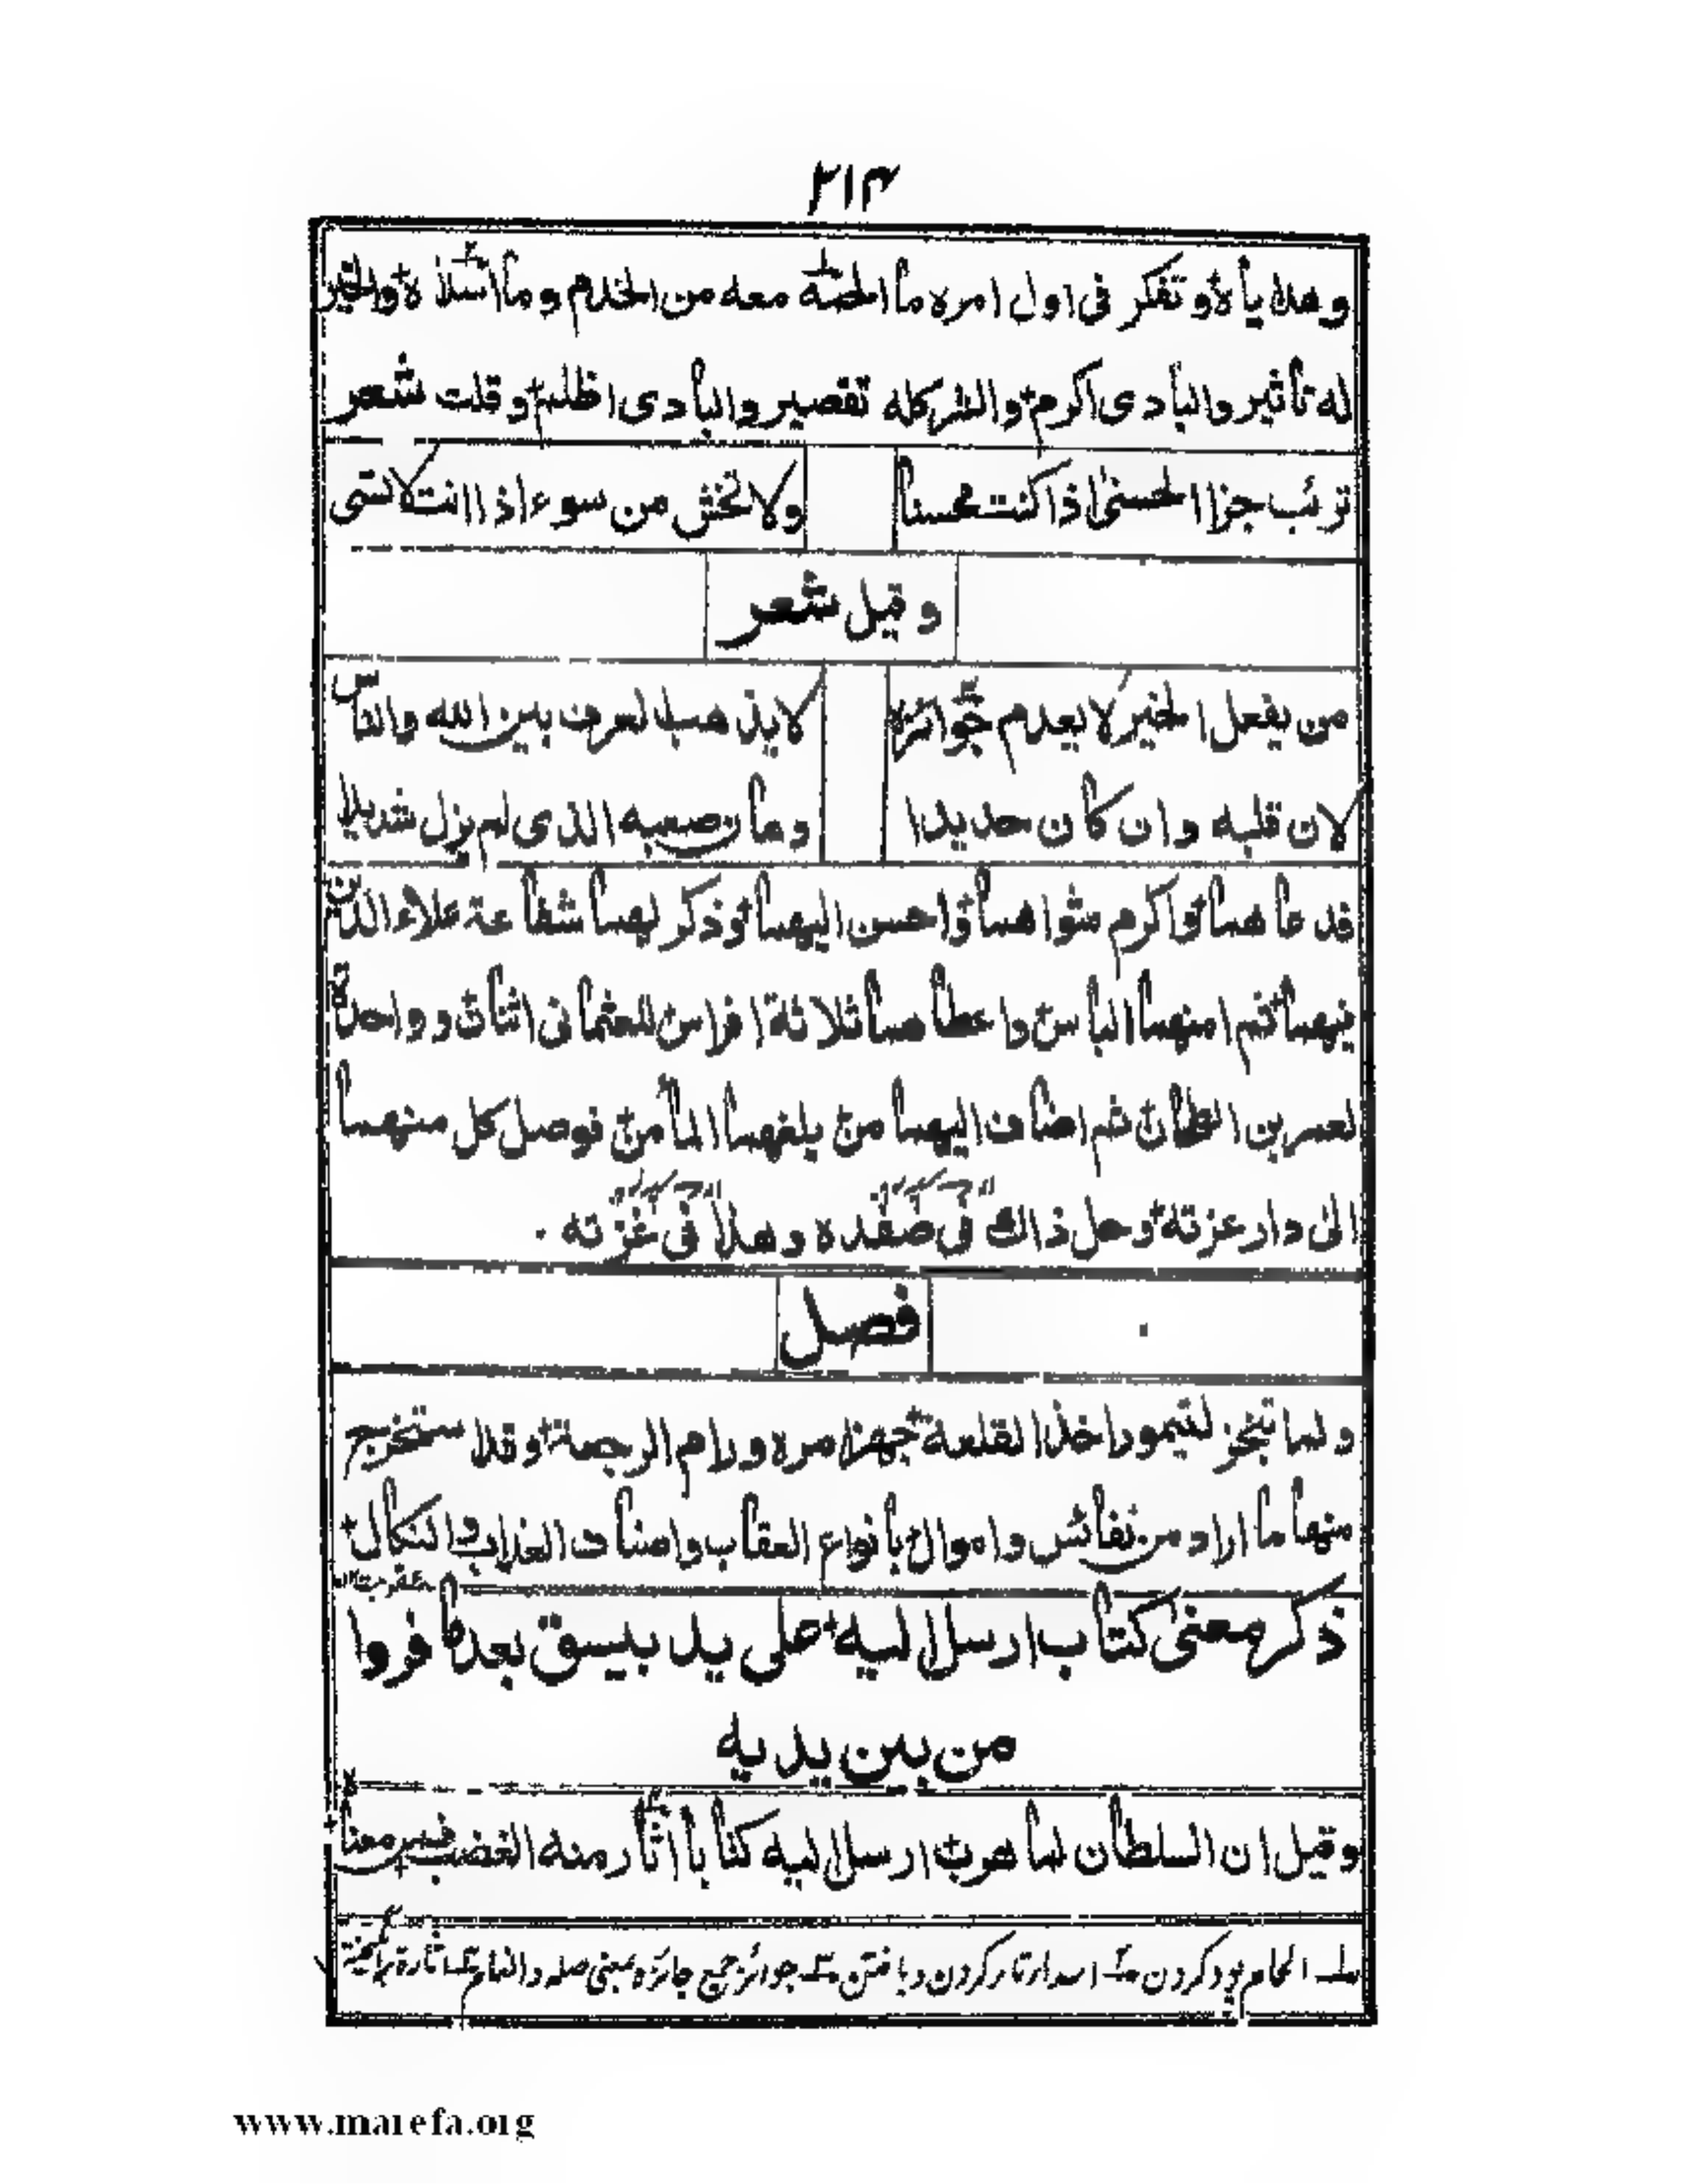 ٢١٤
وهداياه وتفكر فى اول امره ما الحمه معه من الخدم وما اسداه والخير
له تأثير والبادى اكرم والشر كله تقصير والبادى اظلم وقلت شعر
ترقب جزا الحسنى اذا كنت محسنا ولا تخش من سوء اذا انت لا تسى
وقيل شعر
من يفعل الخير لا يعدم جوائزه لا يذهب العرف بين الله والناس
لان قلبه وان كان حديدا وهان صعبه الذى لم يزل شديدا
فدعاهما واكرم مثواهما واحسن اليهما وذكر لهما شفاعة علاء الدين
فيهما ثم امنهما الباس واعطاهما ثلاثة افراس للعثمانى اثنان وواحدة
لعمر بن الطحان ثم اضاف اليهما من يلغهما المأمن فوصل كل منهما
الى دار عزته وحل ذاك فى صفده وهذا فى غزته
فصل
ولما تنجز لتيمور اخذ القلعة جهز امره ورام الرجعة وقد استخرج
منها ما اراد من نفائس واموال بانواع العقاب واصناف العذاب والنكال
ذكر معنى كتاب ارسل اليه على يد بيسق بعد ما فروا
من بين يديه
وقيل ان السلطان لما هرب ارسل اليه كتابا اثار منه الغضب فسر معناه
الحام پود كردن اسدا تار كردن و بافتن جوائز جمع جائزه بمعنى صله وانعام اثارة برانگيخته
www.marefa.org